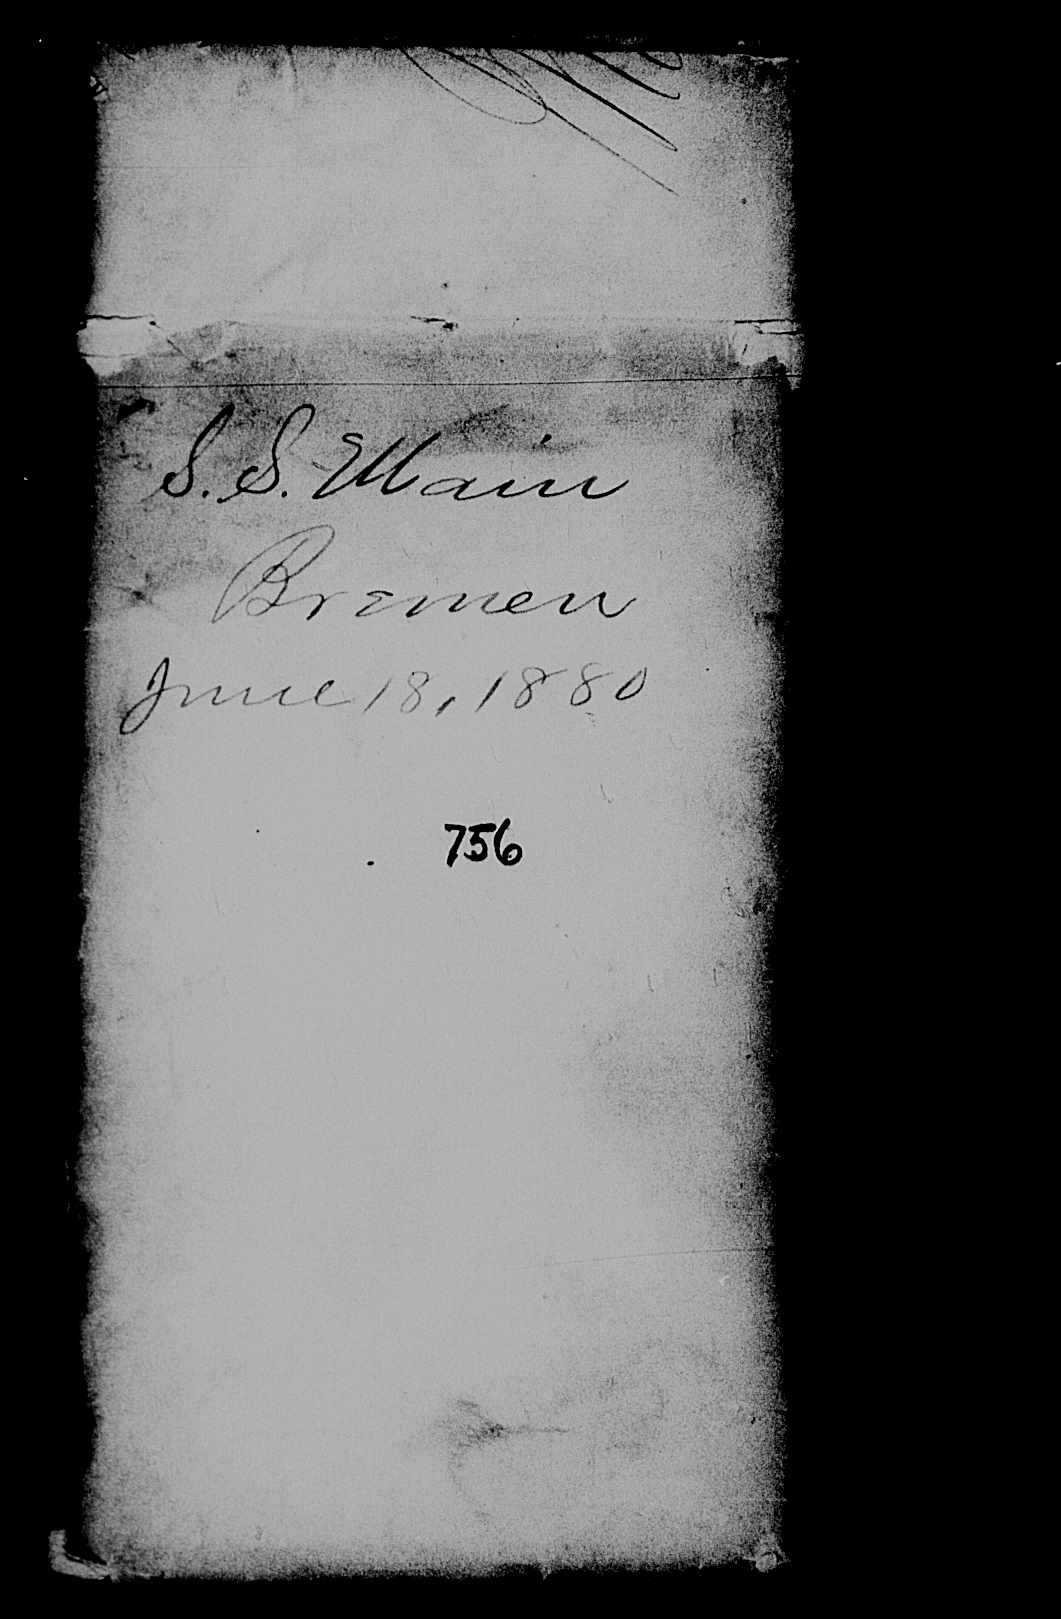 S. S. Main
Bremen
June 18, 1880
756